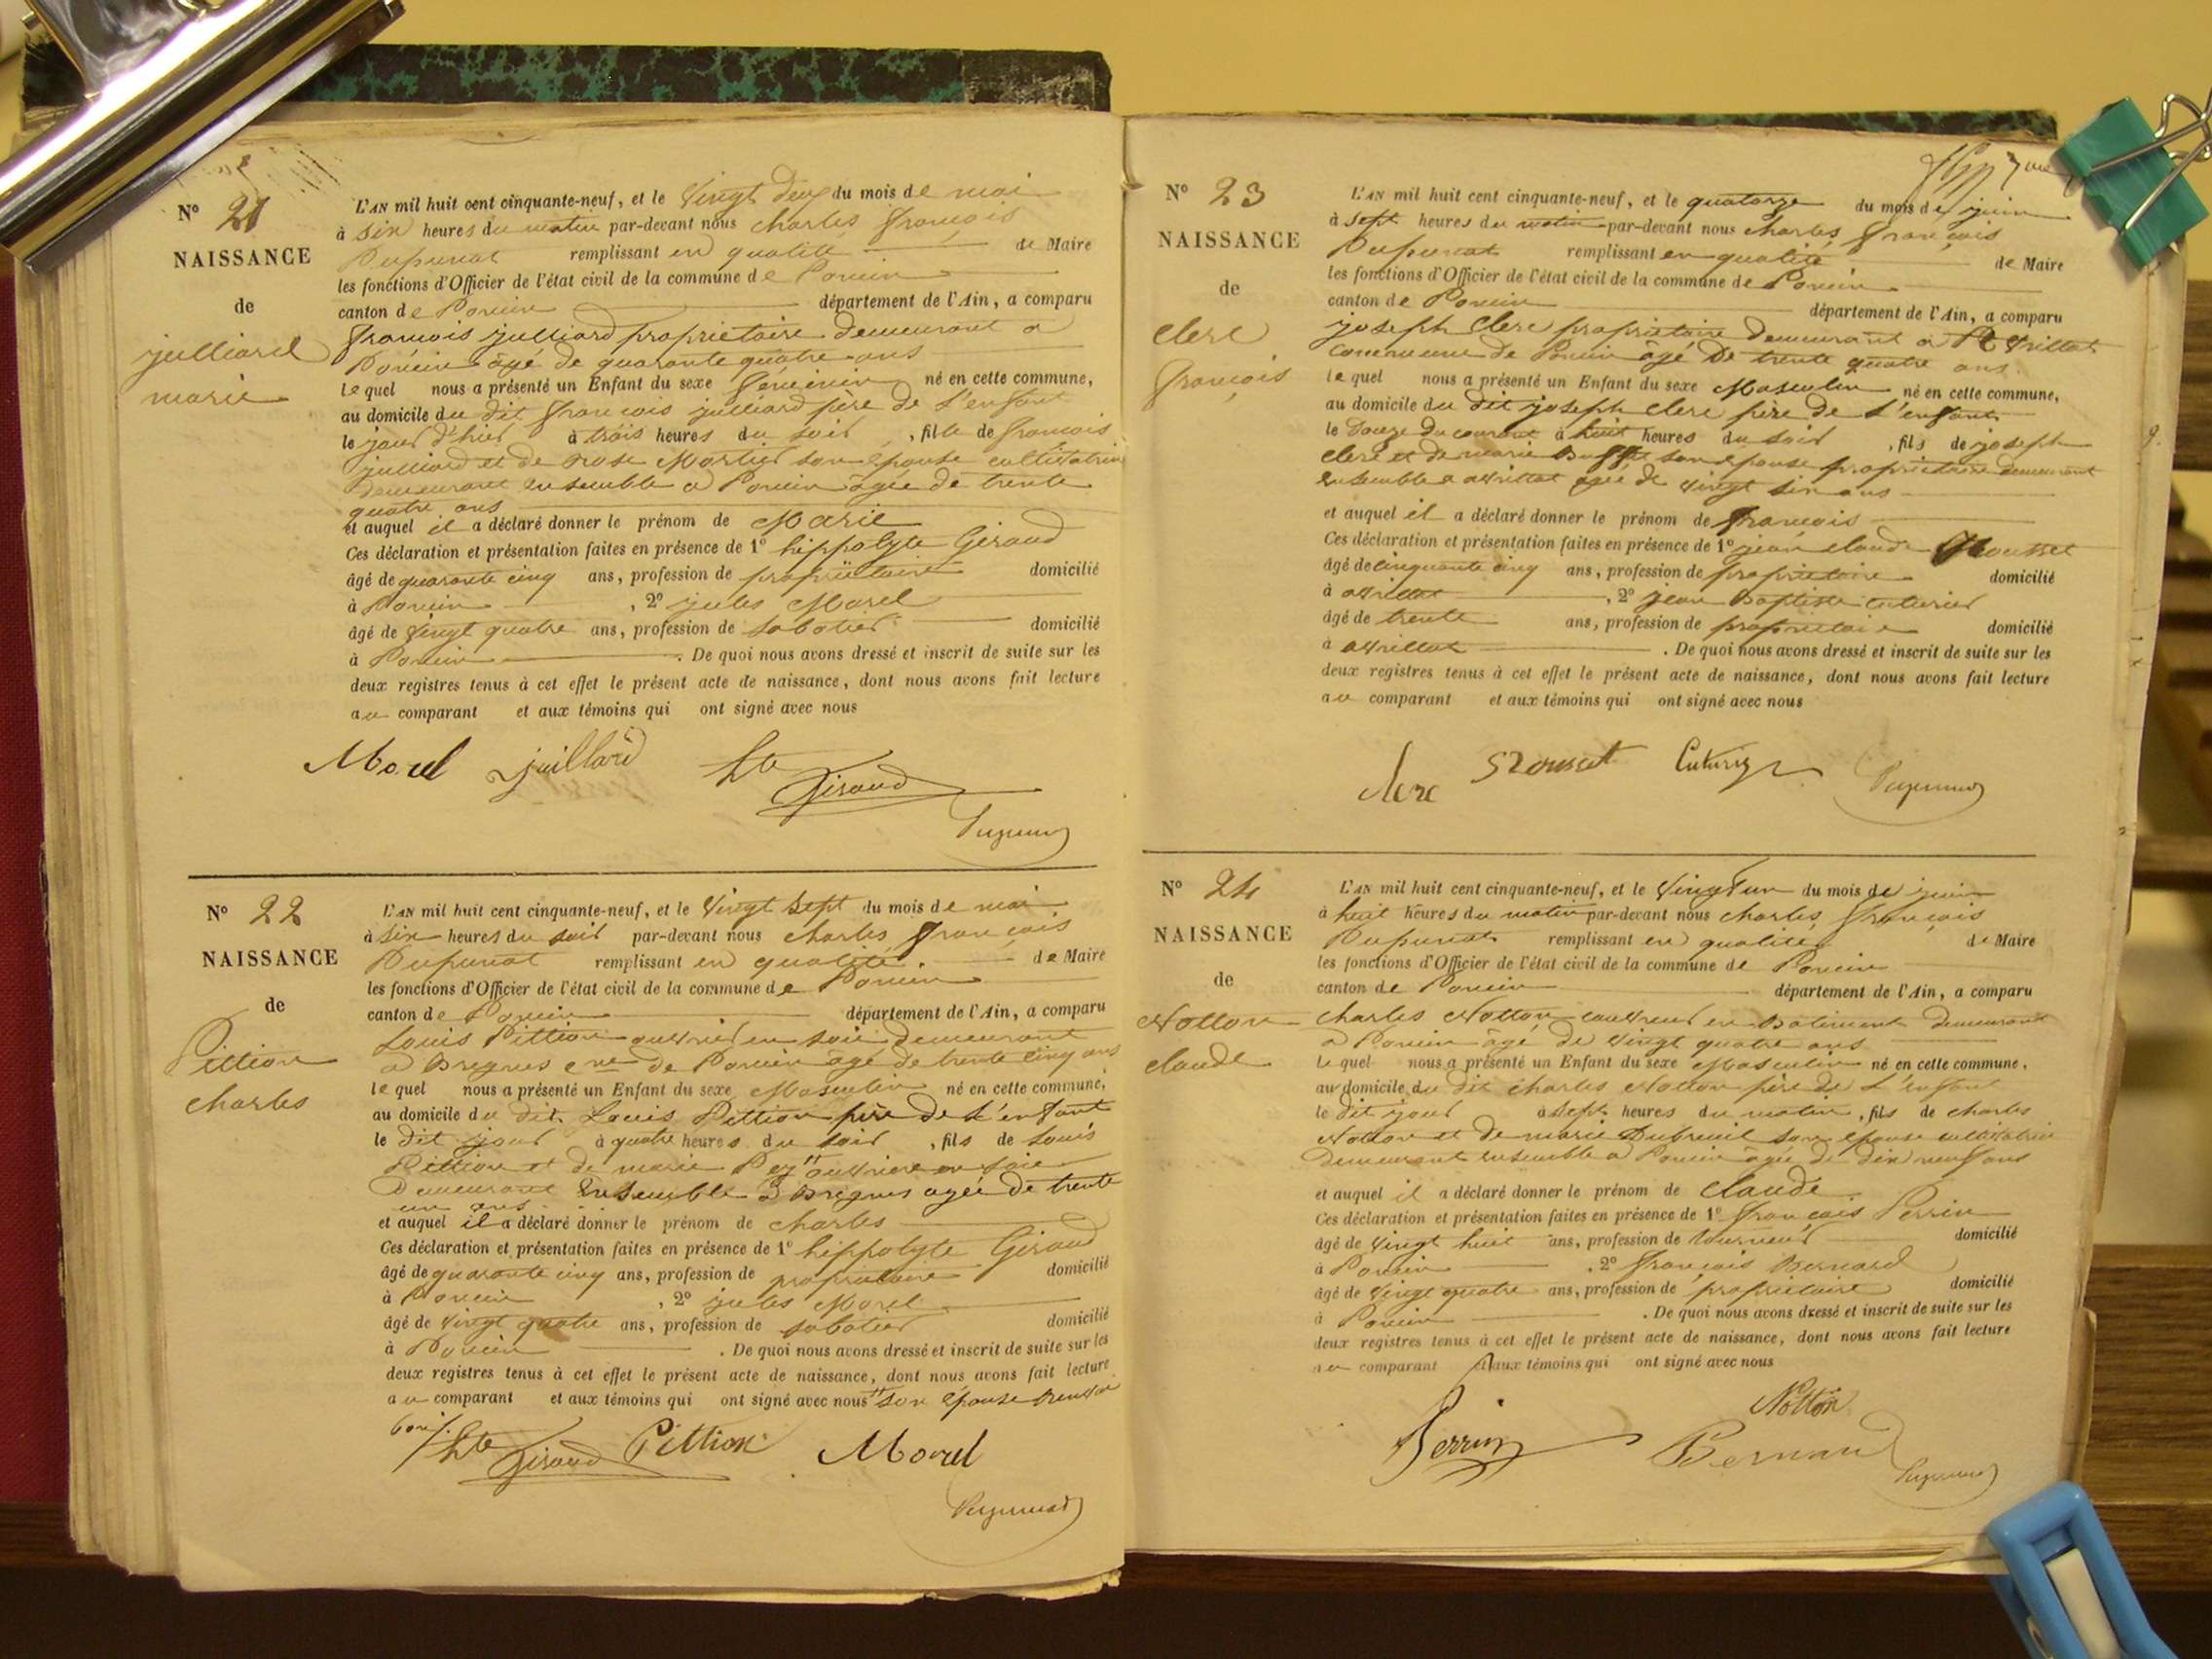 N° 21
NAISSANCE
de
julliard
marie
L'AN mil huit cent cinquante-neuf, et le Vingt deux du mois de mai
à six heures du matin par-devant nous charles françois
Dupunat remplissant en qualité de Maire
les fonctions d'Officier de l'état civil de la commune de Poncin
canton de Poncin département de l'Ain, a comparu
françois julliard propriétaire demeurant a
Poncin âgé de quarante quatre ans
lequel nous a présenté un Enfant du sexe féminin né en cette commune,
au domicile du dit françois julliard père de l'enfant
le jour d'hier à trois heures du soir, fille de françois
julliard et de rose Mortier son épouse cultivatrice
demeurant ensemble a Poncin âgée de trente
quatre ans
et auquel il a déclaré donner le prénom de Marie
Ces déclaration et présentation faites en présence de 1° hippolyte Giraud
âgé de quarante cinq ans, profession de propriétaire domicilié
à Poncin, 2° jules Morel
âgé de Vingt quatre ans, profession de sabotier domicilié
à Poncin. De quoi nous avons dressé et inscrit de suite sur les
deux registres tenus à cet effet le présent acte de naissance, dont nous avons fait lecture
au comparant et aux témoins qui ont signé avec nous
Morel juillard Hte Giraud
N° 22
NAISSANCE
de
Pittion
charles
L'AN mil huit cent cinquante-neuf, et le Vingt sept du mois de mai
à six heures du soir par-devant nous charles françois
Dupunat remplissant en qualité de Maire
les fonctions d'Officier de l'état civil de la commune de Poncin
canton de Poncin département de l'Ain, a comparu
Louis Pittion ouvrier en soie demeurant
a Bregnes cne de Poncin âgé de trente cinq ans
lequel nous a présenté un Enfant du sexe Masculin né en cette commune,
au domicile du dit Louis Pittion père de l'enfant
le dit jour à quatre heures du soir, fils de Louis
Pittion et de marie Pey" ouvrière en soie
Demeurant Ensemble a Bregnes agée de trente
un ans
et auquel il a déclaré donner le prénom de charles
Ces déclaration et présentation faites en présence de 1° hippolyte Giraud
âgé de quarante cinq ans, profession de propriétaire domicilié
à Poncin, 2° jules Morel
âgé de Vingt quatre ans, profession de sabotier domicilié
à Poncin. De quoi nous avons dressé et inscrit de suite sur les
deux registres tenus à cet effet le présent acte de naissance, dont nous avons fait lecture
au comparant et aux témoins qui ont signé avec nous "son épouse renvoi
bon/.
Hte Giraud Pittion Morel
N° 23
NAISSANCE
de
clerc
françois
L'AN mil huit cent cinquante-neuf, et le quatorze du mois de juin
à sept heures du matin par-devant nous charles françois
Dupunat remplissant en qualité de Maire
les fonctions d'Officier de l'état civil de la commune de Poncin
canton de Poncin département de l'Ain, a comparu
joseph clerc propriétaire Demeurant a
commune de Poncin âgé De trente quatre ans.
lequel nous a présenté un Enfant du sexe Masculin né en cette commune,
au domicile du dit joseph clerc père de l'enfant
le Douze du courant à huit heures du soir, fils de joseph
clerc et de marie son épouse propriétaire demeurant
ensemble a avrillat agée de vingt six ans
et auquel il a déclaré donner le prénom de françois
Ces déclaration et présentation faites en présence de 1° jean claude Rousset
âgé de cinquante cinq ans, profession de propriétaire domicilié
à avrillat, 2° jean Baptiste cuturier
âgé de trente ans, profession de propriétaire domicilié
à avrillat. De quoi nous avons dressé et inscrit de suite sur les
deux registres tenus à cet effet le présent acte de naissance, dont nous avons fait lecture
au comparant et aux témoins qui ont signé avec nous
clerc Rousset Cuturier
N° 24
NAISSANCE
de
Notton
claude
L'AN mil huit cent cinquante-neuf, et le Vingt un du mois de juin
à huit heures du matin par-devant nous charles françois
Dupunat remplissant en qualité de Maire
les fonctions d'Officier de l'état civil de la commune de Poncin
canton de Poncin département de l'Ain, a comparu
charles Notton couvreur en Batiment demeurant
a Poncin âgé de Vingt quatre ans
lequel nous a présenté un Enfant du sexe Masculin né en cette commune,
au domicile du dit charles Notton père de l'enfant
le dit jour à sept heures du matin, fils de charles
Notton et de marie Dubreuil son épouse cultivatrice
Demeurant ensemble a Poncin âgée de dix neuf ans
et auquel il a déclaré donner le prénom de claude
Ces déclaration et présentation faites en présence de 1° françois Perrin
âgé de Vingt huit ans, profession de tourneur domicilié
à Poncin, 2° françois Bernard
âgé de Vingt quatre ans, profession de propriétaire domicilié
à Poncin. De quoi nous avons dressé et inscrit de suite sur les
deux registres tenus à cet effet le présent acte de naissance, dont nous avons fait lecture
au comparant et aux témoins qui ont signé avec nous
Notton
Perrin Bernard